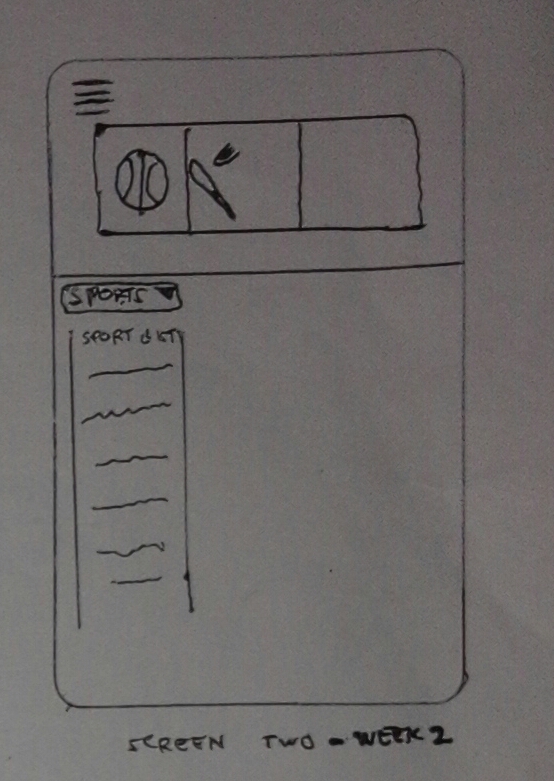 SPORTS
SPORT LIST
SCREEN TWO - WEEK 2